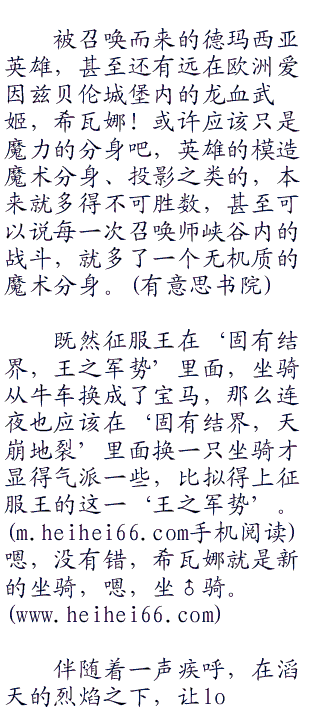 被召唤而来的德玛西亚
英雄，甚至还有远在欧洲爱
因兹贝伦城堡内的龙血武
姬，希瓦娜！或许应该只是
魔力的分身吧，英雄的模造
魔术分身、投影之类的，本
来就多得不可胜数，甚至可
以说每一次召唤师峡谷内的
战斗，就多了一个无机质的
魔术分身。(有意思书院)
既然征服王在‘固有结
界，王之军势’里面，坐骑
从牛车换成了宝马，那么连
夜也应该在‘固有结界，天
崩地裂’里面换一只坐骑才
显得气派一些，比拟得上征
服王的这一‘王之军势’。
(m.heihei66.com手机阅读)
嗯，没有错，希瓦娜就是新
的坐骑，嗯，坐♂骑。
(www.heihei66.com)
伴随着一声疾呼，在滔
天的烈焰之下，让lo